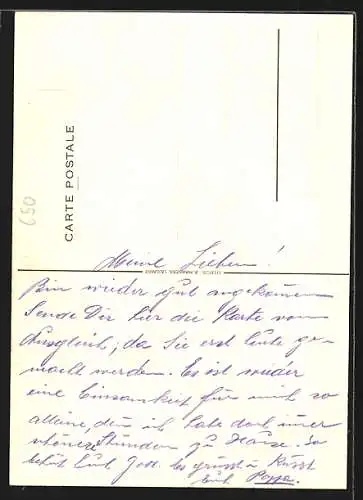 CARTE POSTALE
650
Meine Lieben!
Bin wieder gut angekommen
Sende Dir hier die Karte vom
Ausgleich, da Sie erst heute ge-
macht werden. Es ist wieder
eine Einsamkeit für mich so
alleine, den ich habe doch immer
schönere Stunden zu Hause. So
behüt Euch Gott. Es grüsst u Küsst
Euch Pappa.